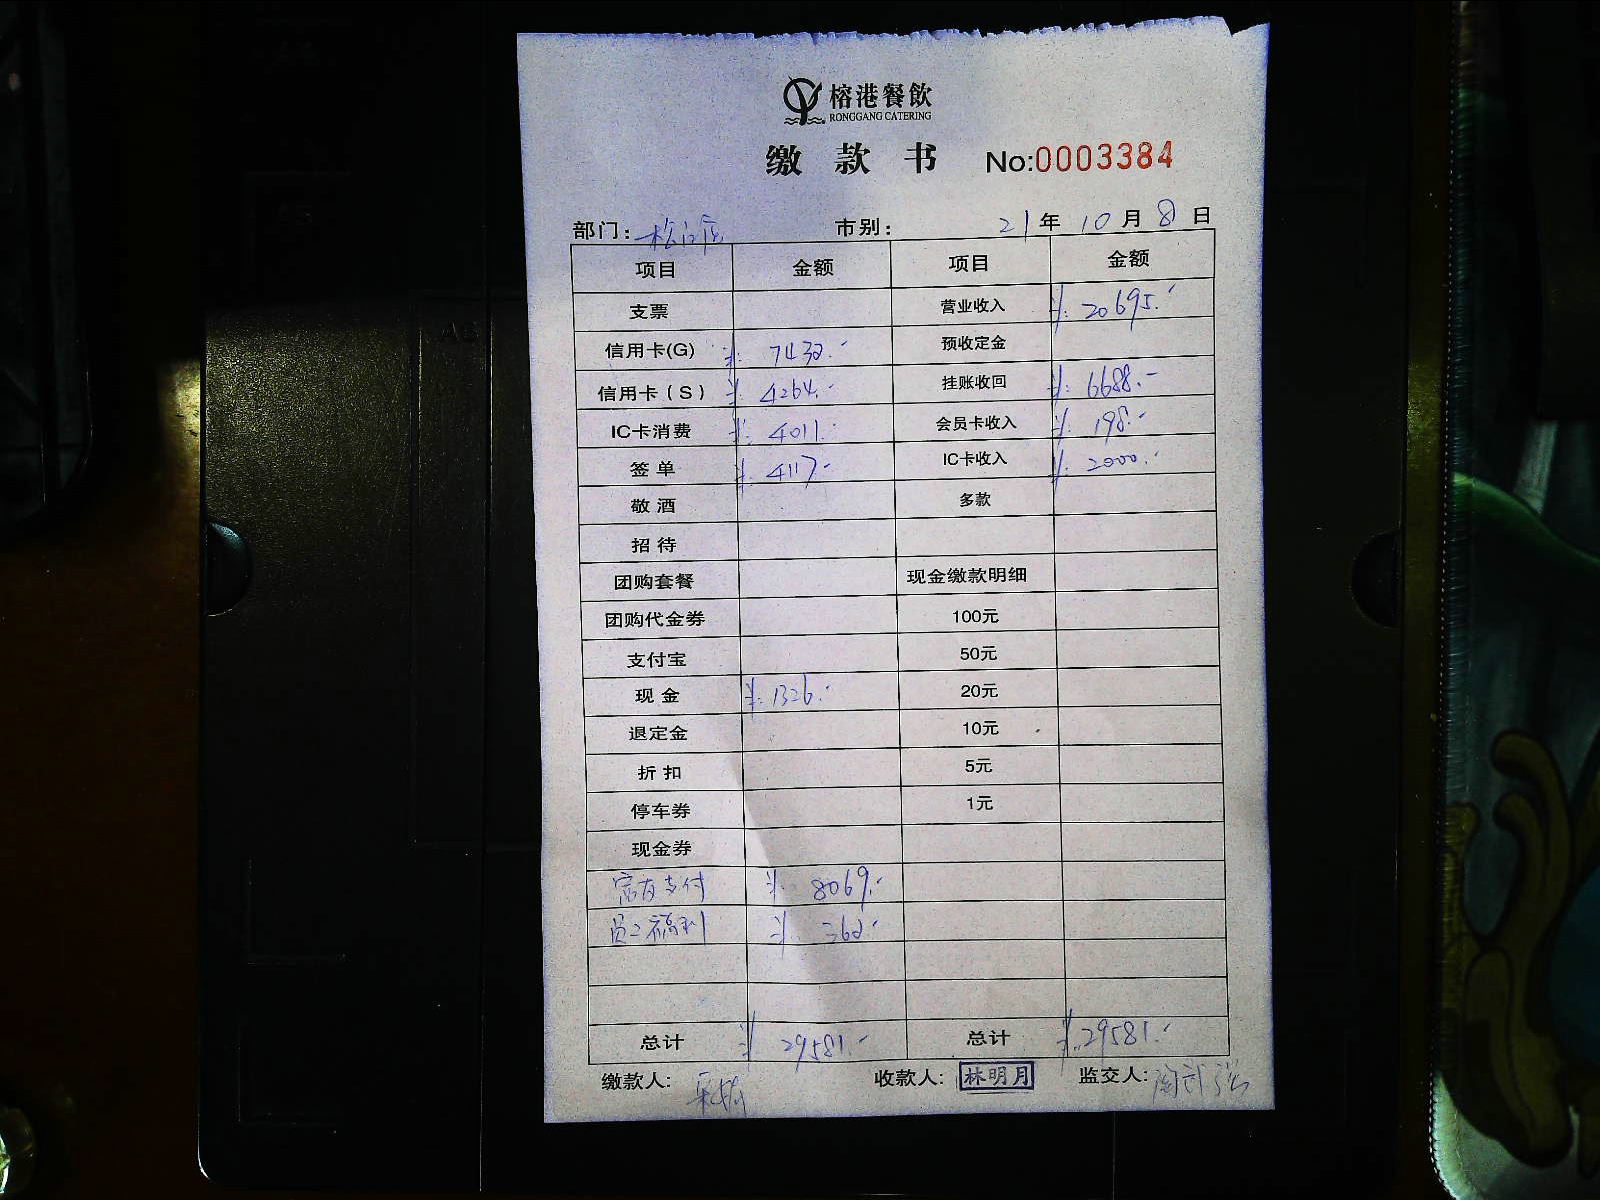 榕港餐飲
RONGGANG CATERING
缴款书 No:0003384
部门: 市别: 21年 10月 8日
项目 金额 项目 金额
支票 营业收入 ¥:20695.-
信用卡(G) ¥:7432.- 预收定金
信用卡(S) ¥:4264.- 挂账收回 ¥:6688.-
IC卡消费 ¥:4011.- 会员卡收入 ¥:198.-
签单 ¥:4117.- IC卡收入 ¥:2000.-
敬酒 多款
招待
团购套餐 现金缴款明细
团购代金券 100元
支付宝 50元
现金 ¥:1326.- 20元
退定金 10元
折扣 5元
停车券 1元
现金券
富友支付 ¥:8069.-
员工福利 ¥:362.-
总计 ¥29581.- 总计 ¥:29581.-
缴款人: 收款人: 林明月 监交人: